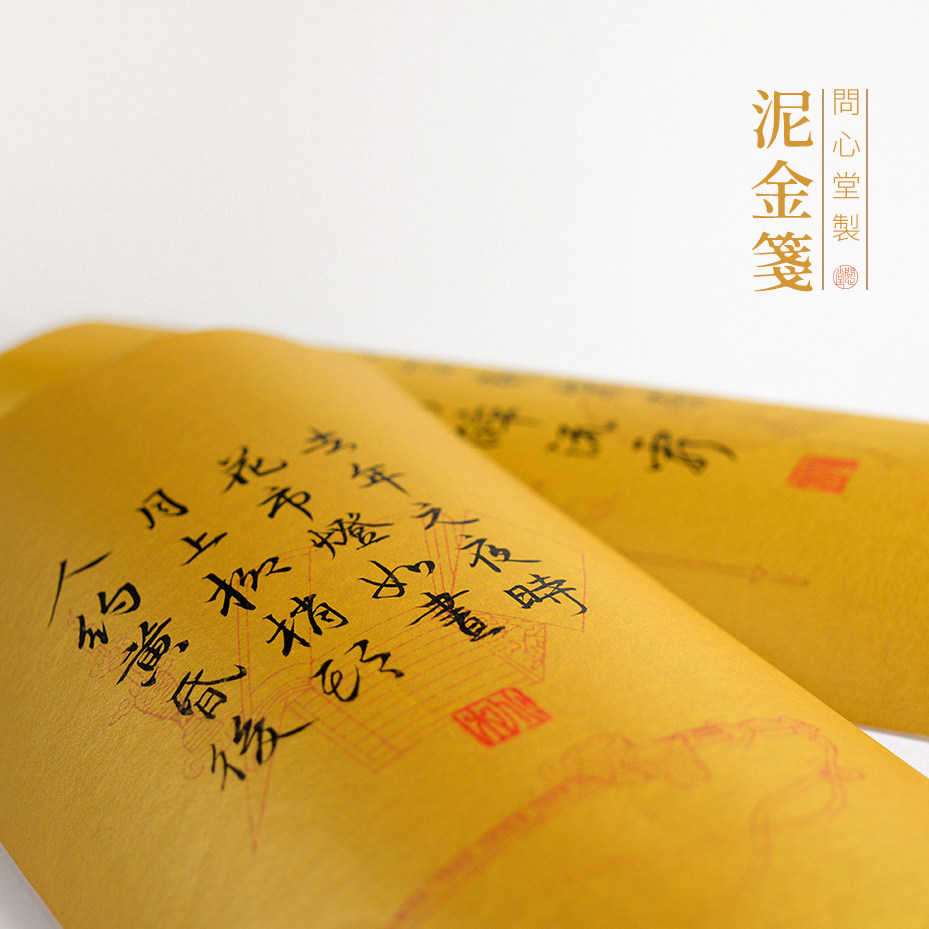 問心堂製
泥金箋
去年元夜時
花市燈如晝
月上柳梢頭
人約黃昏後